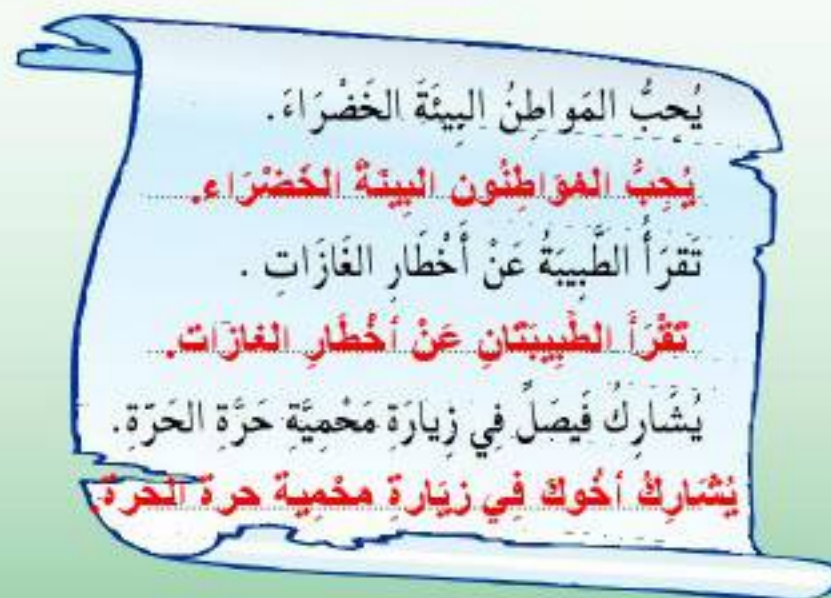 يُحِبُّ المَواطِنُ البِيئَةَ الخَضْرَاءَ.
يُحِبُّ المَوَاطِنُون البِيئَةَ الخَضْرَاءِ.
تَقرَأُ الطَّبِيبَةُ عَنْ أَخْطَارِ الغَازَاتِ .
تَقْرَأَ الطَّبِيبَتَانِ عَنْ أخْطَارِ الغازَات.
يُشَارِكُ فَيصَلٌ فِي زِيارَةِ مَحْمِيَّةِ حَرَّةِ الحَرّةِ.
يُشَارِكُ أخُوكَ فِي زِيَارةِ محْمِية حرة الحرة.